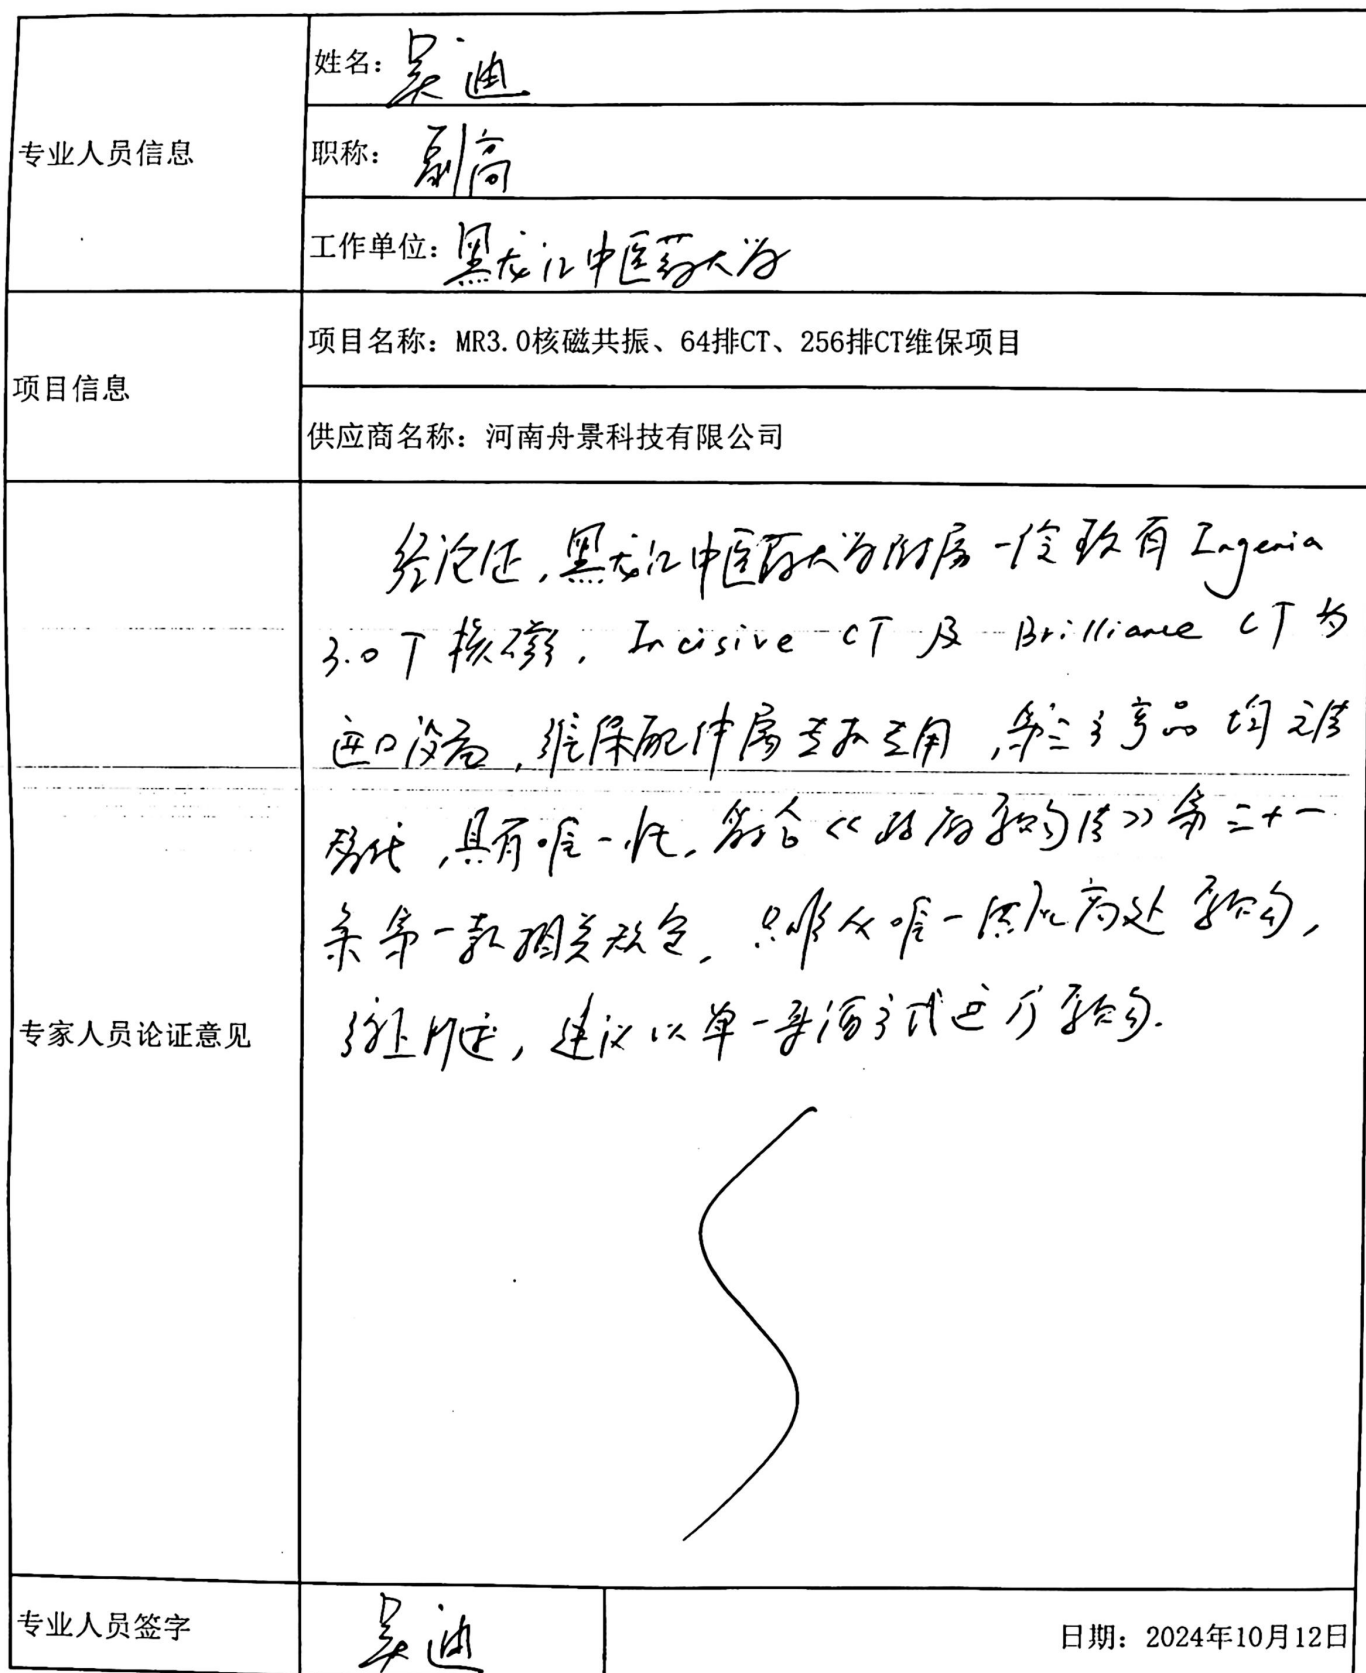 专业人员信息
姓名：吴迪
职称：副高
工作单位：黑龙江中医药大学
项目信息
项目名称：MR3.0核磁共振、64排CT、256排CT维保项目
供应商名称：河南舟景科技有限公司
专家人员论证意见
经论证，黑龙江中医药大学附属一院现有Ingenia
3.0T核磁．Incisive CT及Brilliance CT为
进口设备，维保配件属专机专用，第三方产品均无法
替代，具有唯一性，符合《政府采购法》第三十一
条第一款相关规定，只能从唯一供应商处采购，
综上所述，建议以单一来源方式进行采购．
专业人员签字
吴迪
日期：2024年10月12日